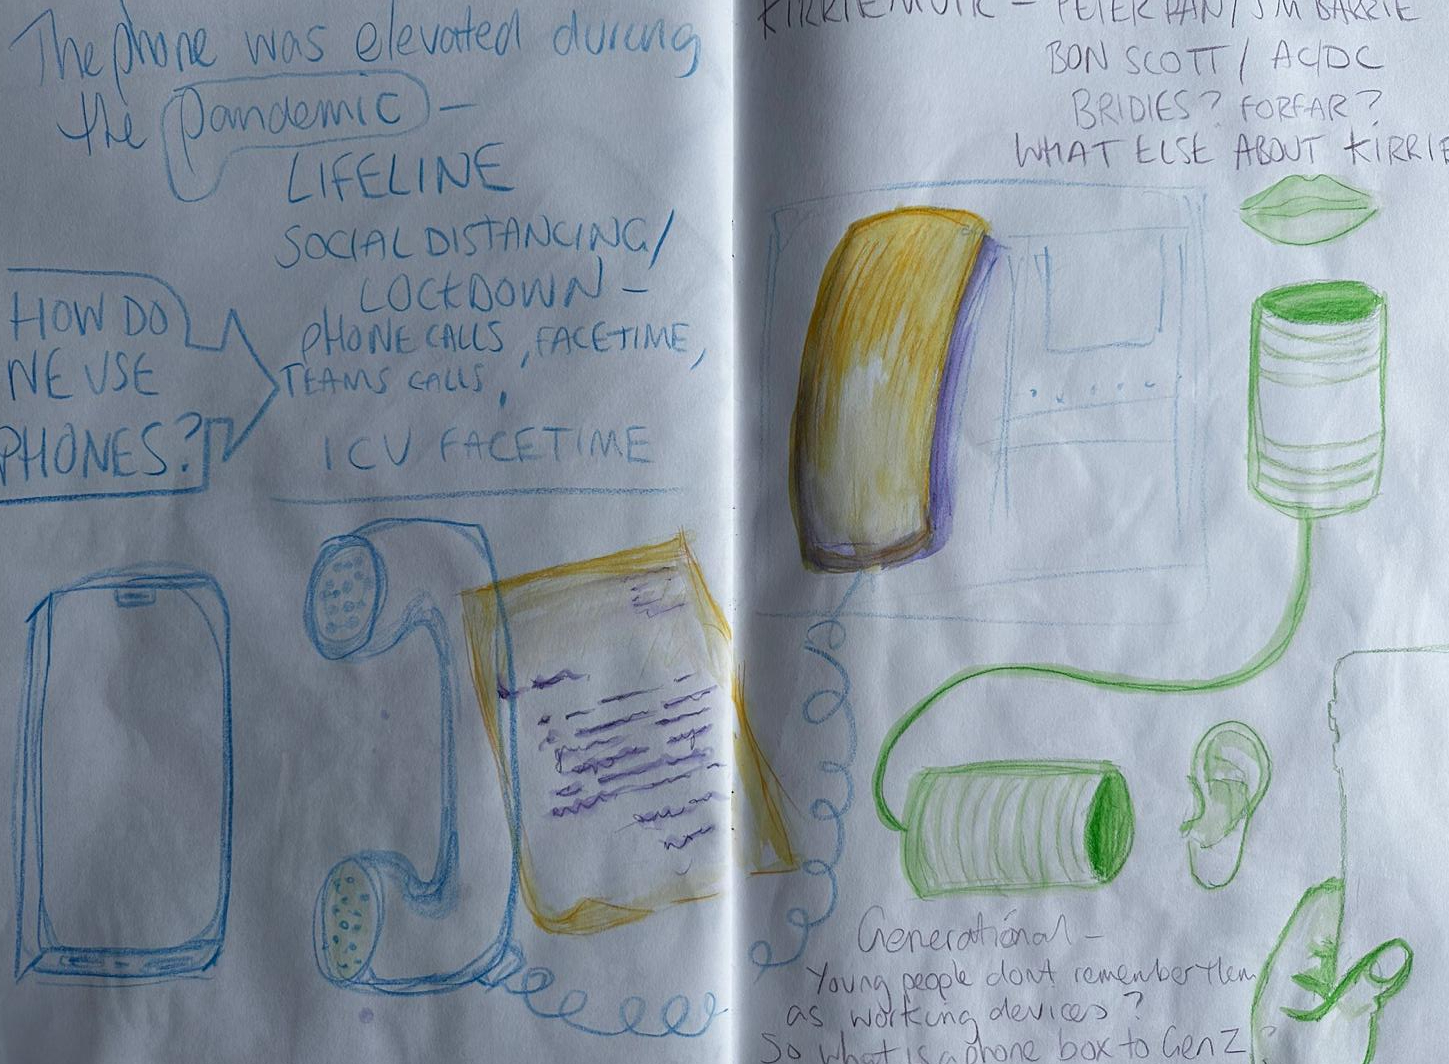 The phone was elevated during
the pandemic –
LIFELINE
SOCIAL DISTANCING/
LOCKDOWN –
PHONE CALLS, FACETIME,
TEAMS CALLS,
ICU FACETIME
HOW DO
WE USE
PHONES?
KIRRIEMUIR – PETER PAN/JM BARRIE
BON SCOTT/ AC/DC
BRIDIES? FORFAR?
WHAT ELSE ABOUT KIRRIE
Generational –
Young people dont remember them
as working devices?
So what is a phone box to Gen Z?